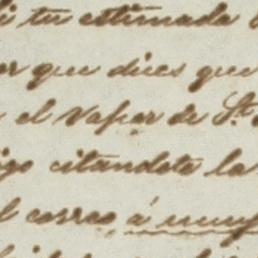 tu estimada
que dices que
el Vapor de St.
citandote la
correo á muy